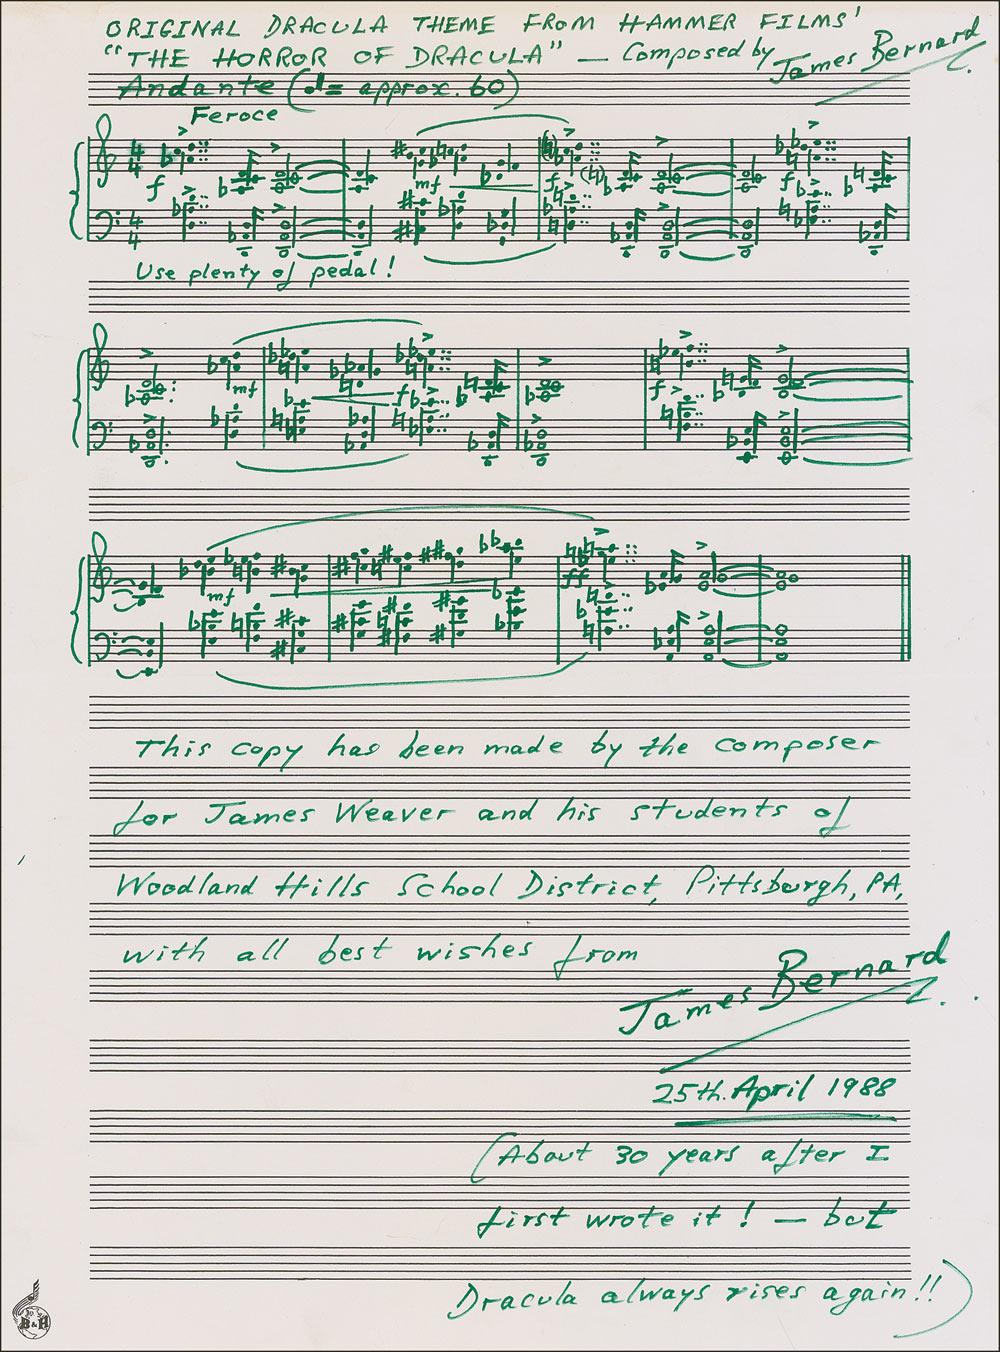 ORIGINAL DRACULA THEME FROM HAMMER FILMS'
"THE HORROR OF DRACULA" — Composed by James Bernard
Andante (♩= approx. 60)
Feroce
4 4
f mf f f
4 4
Use plenty of pedal!
mf f f
mf ff
This copy has been made by the composer
for James Weaver and his students of
Woodland Hills School District, Pittsburgh, PA,
with all best wishes from
James Bernard
25th. April 1988
(About 30 years after I
first wrote it! — but
Dracula always rises again!!)
B&H